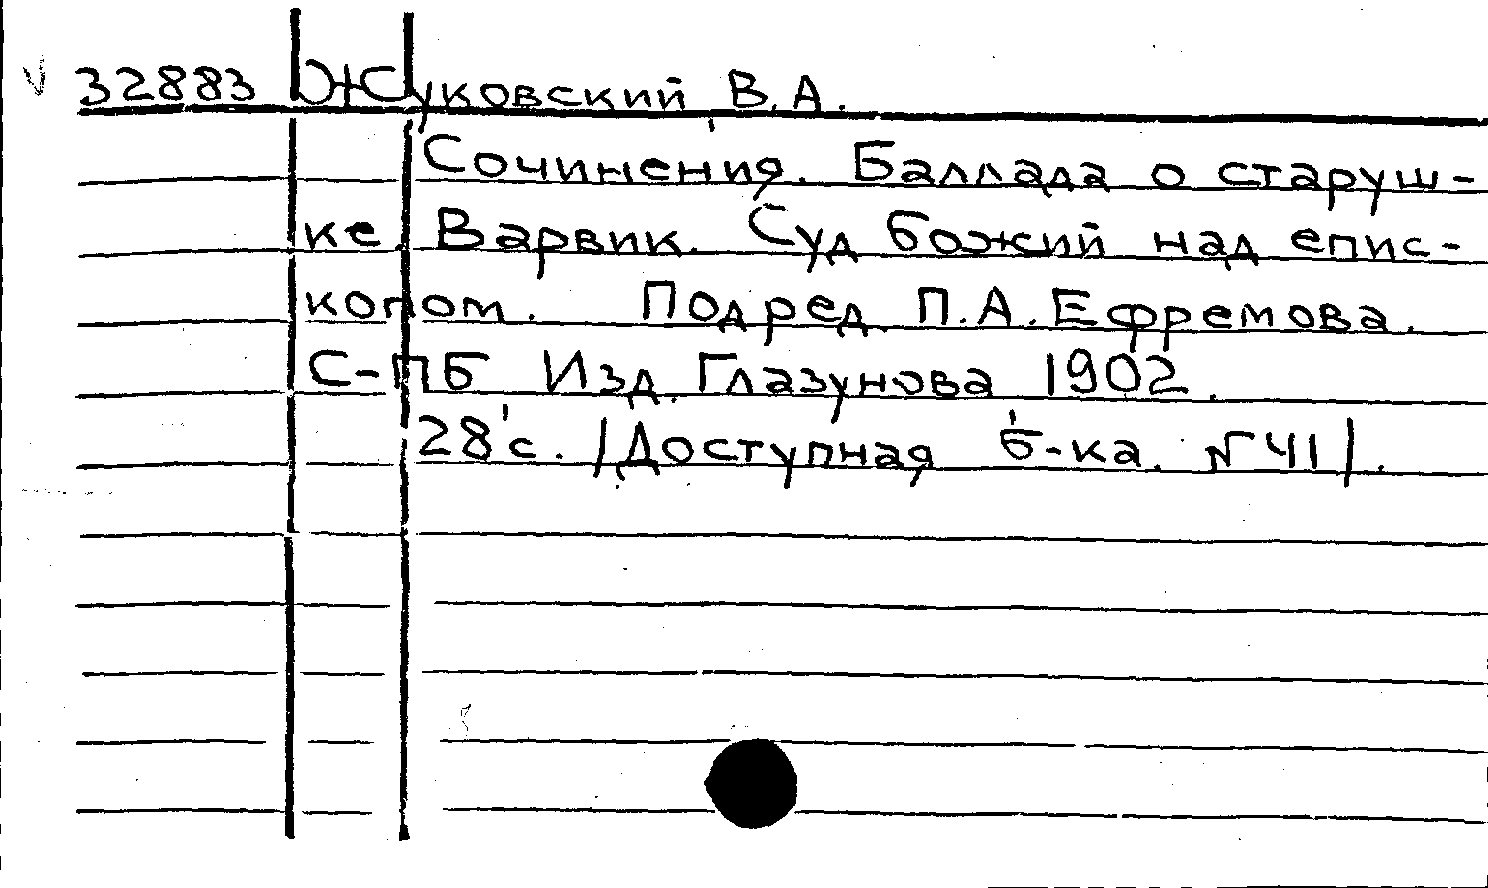 32883 Жуковский В.А.
Сочинения. Баллада о старуш-
ке Варвик. Суд божий над епис-
копом. Под ред. П.А. Ефремова.
С-ПБ Изд. Глазунова 1902.
28 с. /Доступная б-ка. № 41/.